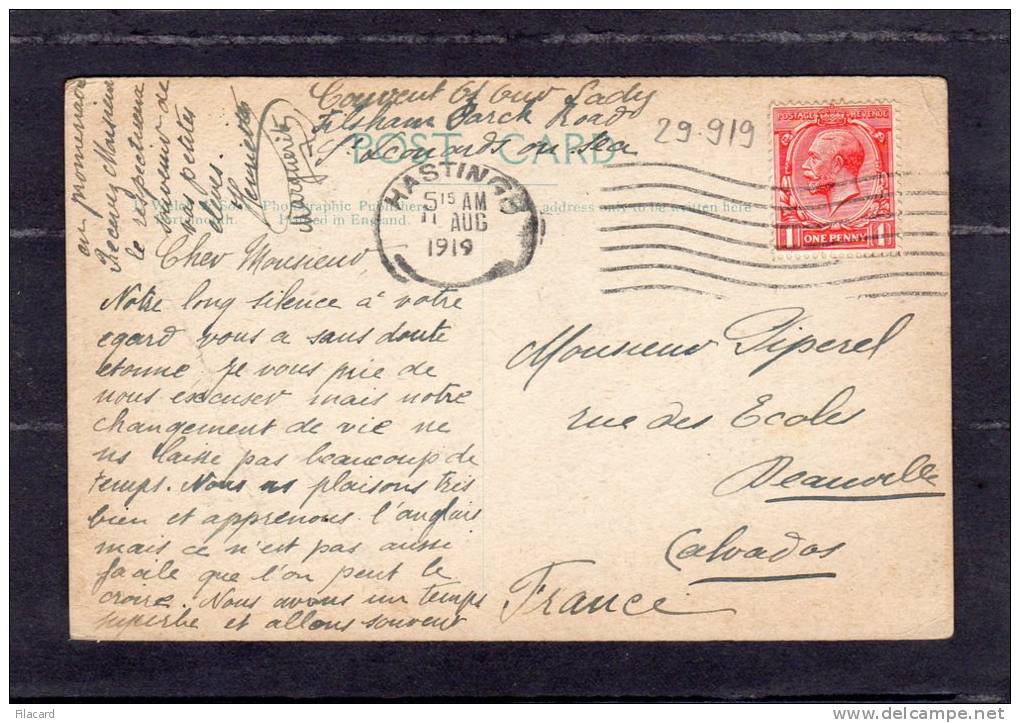 Couvent of Our Lady
Filsham Parck Road
St Leonards on sea
POST CARD
29-919
POSTAGE REVENUE
1 ONE PENNY 1
HASTINGS
5 15 AM
11 AUG
1919
Photographic Publishers
Portsmouth. Printed in England.
address only to be written here
Cher Monsieur,
Notre long silence à votre
egard vous a sans doute
etonné je vous prie de
nous excuser mais notre
changement de vie ne
ns laisse pas beaucoup de
temps. Nous ns plaisons très
bien et apprenons l'anglais
mais ce n'est pas aussi
facile que l'on peut le
croire. Nous avons un temps
superbe et allons souvent
en promenade
Recevez Monsieur
le respectueux
souvenir de
vos petites
élèves.
Marguerite
Monsieur Piperel
rue des Ecoles
Deauville
Calvados
France
filacard
www.delcampe.net